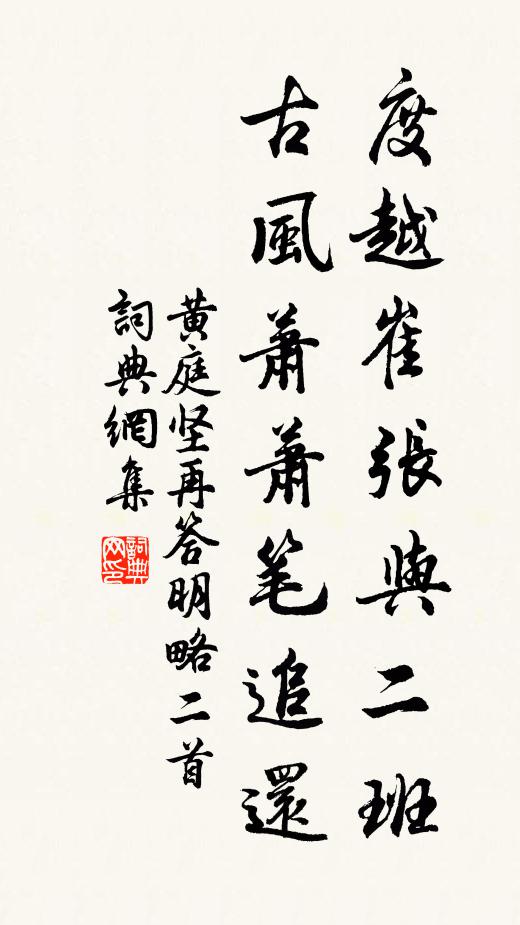 度越崔張與二班
古風蕭蕭笔追還
黄庭坚再答明略二首
詞典網集
詞典
网印